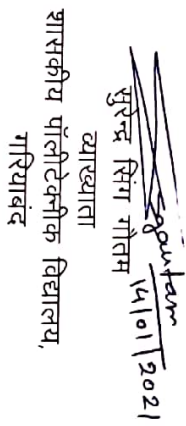 Sgautam
14/01/2021
सुरेन्द्र सिंग गौतम
व्याख्याता
शासकीय पॉलीटेक्नीक विद्यालय,
गरियाबंद